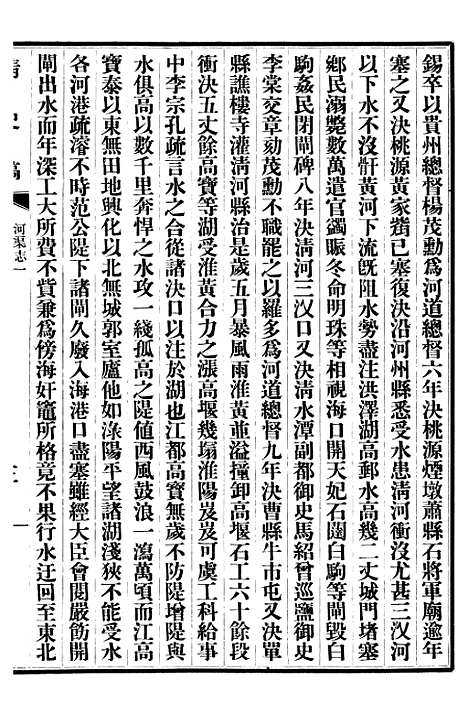 錫卒以貴州總督楊茂勳爲河道總督六年決桃源煙墩蕭縣石將軍廟逾年
塞之又決桃源黃家觜已塞復決沿河州縣悉受水患清河衝沒尤甚三汊河
以下水不沒骭黃河下流旣阻水勢盡注洪澤湖高郵水高幾二丈城門堵塞
鄉民溺斃數萬遣官蠲賑冬命明珠等相視海口開天妃石䃮白駒等閘毀白
駒姦民閉閘碑八年決清河三汊口又決清水潭副都御史馬紹曾巡鹽御史
李棠交章劾茂勳不職罷之以羅多爲河道總督九年決曹縣牛市屯又決單
縣譙樓寺灌清河縣治是歲五月暴風雨淮黃並溢撞卸高堰石工六十餘段
衝決五丈餘高寶等湖受淮黃合力之漲高堰幾塌淮陽岌岌可虞工科給事
中李宗孔疏言水之合從諸決口以注於湖也江都高寶無歲不防隄增隄與
水俱高以數千里奔悍之水攻一綫孤高之隄値西風鼓浪一瀉萬頃而江高
寶泰以東無田地興化以北無城郭室廬他如淥陽平望諸湖淺狹不能受水
各河港疏濬不時范公隄下諸閘久廢入海港口盡塞雖經大臣會閱嚴飭開
閘出水而年深工大所費不貲兼爲傍海奸竈所格竟不果行水迂回至東北
清史稿 河渠志一